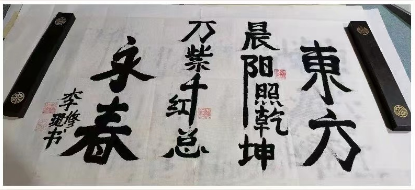 東方
晨阳照乾坤
万紫千红总
永春
李修玉书